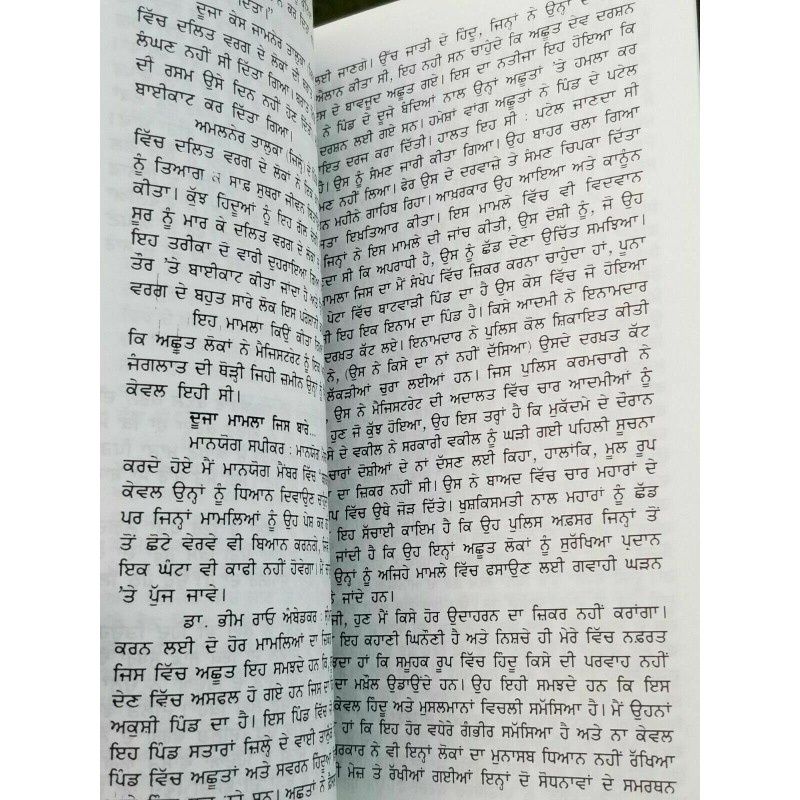 ਦਿੱਤਾ।"
ਦੂਜਾ ਕੇਸ ਜਾਮਨੇਰ ਤਾਲੁਕਾ
ਵਿੱਚ ਦਲਿਤ ਵਰਗ ਦੇ ਲੋਕਾਂ ਦੀ
ਲੰਘਣ ਨਹੀਂ ਸੀ ਦਿੱਤਾ ਗਿਆ।
ਦੀ ਰਸਮ ਉਸੇ ਦਿਨ ਨਹੀਂ ਹੋਣ
ਬਾਈਕਾਟ ਕਰ ਦਿੱਤਾ ਗਿਆ।
ਅਮਲਨੇਰ ਤਾਲੁਕਾ (ਜਿਸੇ) ਦੇ
ਵਿੱਚ ਦਲਿਤ ਵਰਗ ਦੇ ਲੋਕਾਂ ਨੇ
ਨੂੰ ਤਿਆਗ ਕੇ ਸਾਫ਼ ਸੁਥਰਾ ਜੀਵਨ
ਕੀਤਾ। ਕੁੱਝ ਹਿਦੂਆਂ ਨੂੰ ਇਹ ਗੱਲ
ਸੂਰ ਨੂੰ ਮਾਰ ਕੇ ਦਲਿਤ ਵਰਗ ਦੇ ਲੋਕਾਂ
ਇਹ ਤਰੀਕਾ ਦੋ ਵਾਰੀ ਦੁਹਰਾਇਆ ਗਿਆ
ਤੌਰ 'ਤੇ ਬਾਈਕਾਟ ਕੀਤਾ ਜਾਂਦਾ ਹੈ ਅਤੇ
ਵਰਗ ਦੇ ਬਹੁਤ ਸਾਰੇ ਲੋਕ ਇਸ
ਇਹ ਮਾਮਲਾ ਕਿਉਂ ਕੀਤਾ ਗਿਆ
ਕਿ ਅਛੂਤ ਲੋਕਾਂ ਨੇ ਮੈਜਿਸਟਰੇਟ ਨੂੰ
ਜੰਗਲਾਤ ਦੀ ਥੋੜ੍ਹੀ ਜਿਹੀ ਜ਼ਮੀਨ ਉਨ੍ਹਾਂ ਨੂੰ
ਕੇਵਲ ਇਹੀ ਸੀ।
ਦੂਜਾ ਮਾਮਲਾ ਜਿਸ ਬਾਰੇ...
ਮਾਨਯੋਗ ਸਪੀਕਰ : ਮਾਨਯੋਗ
ਕਰਦੇ ਹੋਏ ਮੈਂ ਮਾਨਯੋਗ ਮੈਂਬਰ ਵਿੱਚ
ਕੇਵਲ ਉਨ੍ਹਾਂ ਨੂੰ ਧਿਆਨ ਦਿਵਾਉਣ
ਪਰ ਜਿਨ੍ਹਾਂ ਮਾਮਲਿਆਂ ਨੂੰ ਉਹ ਪੇਸ਼ ਕਰ
ਤੋਂ ਛੋਟੇ ਵੇਰਵੇ ਵੀ ਬਿਆਨ ਕਰਨਗੇ,
ਇਕ ਘੰਟਾ ਵੀ ਕਾਫੀ ਨਹੀਂ ਹੋਵੇਗਾ। ਮੈਂ
'ਤੇ ਪੁੱਜ ਜਾਵੇ।
ਡਾ. ਭੀਮ ਰਾਓ ਅੰਬੇਡਕਰ :
ਕਰਨ ਲਈ ਦੋ ਹੋਰ ਮਾਮਲਿਆਂ ਦਾ
ਜਿਸ ਵਿੱਚ ਅਛੂਤ ਇਹ ਸਮਝਦੇ ਹਨ ਕਿ
ਦੇਣ ਵਿੱਚ ਅਸਫਲ ਹੋ ਗਏ ਹਨ ਜਿਸ ਦਾ
ਅਕੁਸ਼ੀ ਪਿੰਡ ਦਾ ਹੈ। ਇਸ ਪਿੰਡ ਵਿੱਚ
ਇਹ ਪਿੰਡ ਸਤਾਰਾਂ ਜ਼ਿਲ੍ਹੇ ਦੇ ਵਾਈ
ਪਿੰਡ ਵਿੱਚ ਅਛੂਤਾਂ ਅਤੇ ਸਵਰਨ ਹਿਦੂਆਂ
ਸਨ। ਅਛੂਤਾਂ ਨੇ
ਲਈ ਜਾਣਗੇ। ਉੱਚ ਜਾਤੀ ਦੇ ਹਿਦੂ, ਜਿਨ੍ਹਾਂ ਨੇ ਉਨ੍ਹਾਂ ਦੇ
ਐਲਾਨ ਕੀਤਾ ਸੀ, ਇਹ ਨਹੀ ਸਨ ਚਾਹੁੰਦੇ ਕਿ ਅਛੂਤ ਦੇਵ ਦਰਸ਼ਨ
ਦੇ ਬਾਵਜੂਦ ਅਛੂਤ ਗਏ। ਇਸ ਦਾ ਨਤੀਜਾ ਇਹ ਹੋਇਆ ਕਿ
ਨੇ ਪਿੰਡ ਦੇ ਦੂਜੇ ਬੰਦਿਆਂ ਨਾਲ ਉਨ੍ਹਾਂ ਅਛੂਤਾਂ 'ਤੇ ਹਮਲਾ ਕਰ
ਦਰਸ਼ਨ ਲਈ ਗਏ ਸਨ। ਹਮੇਸ਼ਾਂ ਵਾਂਗ ਅਛੂਤਾਂ ਨੇ ਪਿੰਡ ਦੇ ਪਟੇਲ
ਦਰਜ ਕਰਾ ਦਿੱਤੀ। ਹਾਲਤ ਇਹ ਸੀ : ਪਟੇਲ ਜਾਣਦਾ ਸੀ
ਉਸ ਨੂੰ ਸੰਮਣ ਜਾਰੀ ਕੀਤਾ ਗਿਆ। ਉਹ ਬਾਹਰ ਚਲਾ ਗਿਆ
ਨਹੀਂ ਲਿਆ। ਫੇਰ ਉਸ ਦੇ ਦਰਵਾਜ਼ੇ ਤੇ ਸੰਮਣ ਚਿਪਕਾ ਦਿੱਤਾ
ਮਹੀਨੇ ਗਾਹਿਬ ਰਿਹਾ। ਆਖ਼ਰਕਾਰ ਉਹ ਆਇਆ ਅਤੇ ਕਾਨੂੰਨ
ਇਖਤਿਆਰ ਕੀਤਾ। ਇਸ ਮਾਮਲੇ ਵਿੱਚ ਵੀ ਵਿਦਵਾਨ
ਜਿਨ੍ਹਾਂ ਨੇ ਇਸ ਮਾਮਲੇ ਦੀ ਜਾਂਚ ਕੀਤੀ, ਉਸ ਦੋਸ਼ੀ ਨੂੰ, ਜੋ ਉਹ
ਸੀ ਕਿ ਅਪਰਾਧੀ ਹੈ, ਉਸ ਨੂੰ ਛੱਡ ਦੇਣਾ ਉਚਿੱਤ ਸਮਝਿਆ।
ਮਾਮਲਾ ਜਿਸ ਦਾ ਮੈਂ ਸੰਖੇਪ ਵਿੱਚ ਜ਼ਿਕਰ ਕਰਨਾ ਚਾਹੁੰਦਾ ਹਾਂ, ਪੂਨਾ
ਪੇਟਾ ਵਿੱਚ ਬਾਟਵਾੜੀ ਪਿੰਡ ਦਾ ਹੈ ਉਸ ਕੇਸ ਵਿੱਚ ਜੋ ਹੋਇਆ
ਇਹ ਇਕ ਇਨਾਮ ਦਾ ਪਿੰਡ ਹੈ। ਕਿਸੇ ਆਦਮੀ ਨੇ ਇਨਾਮਦਾਰ
ਦਰਖ਼ਤ ਕੱਟ ਲਏ। ਇਨਾਮਦਾਰ ਨੇ ਪੁਲਿਸ ਕੋਲ ਸ਼ਿਕਾਇਤ ਕੀਤੀ
ਨੇ, (ਉਸ ਨੇ ਕਿਸੇ ਦਾ ਨਾਂ ਨਹੀਂ ਦੱਸਿਆ) ਉਸਦੇ ਦਰਖ਼ਤ ਕੱਟ
ਲੱਕੜੀਆਂ ਚੁਰਾ ਲਈਆਂ ਹਨ। ਜਿਸ ਪੁਲਿਸ ਕਰਮਚਾਰੀ ਨੇ
ਉਸ ਨੇ ਮੈਜਿਸਟਰੇਟ ਦੀ ਅਦਾਲਤ ਵਿੱਚ ਚਾਰ ਆਦਮੀਆਂ ਨੂੰ
ਹੁਣ ਜੋ ਕੁੱਝ ਹੋਇਆ, ਉਹ ਇਸ ਤਰ੍ਹਾਂ ਹੈ ਕਿ ਮੁਕੱਦਮੇ ਦੇ ਦੌਰਾਨ
ਦੇ ਵਕੀਲ ਨੇ ਸਰਕਾਰੀ ਵਕੀਲ ਨੂੰ ਘੜੀ ਗਈ ਪਹਿਲੀ ਸੂਚਨਾ
ਚਾਰਾਂ ਦੋਸ਼ੀਆਂ ਦੇ ਨਾਂ ਦੱਸਣ ਲਈ ਕਿਹਾ, ਹਾਲਾਂਕਿ, ਮੂਲ ਰੂਪ
ਦਾ ਜ਼ਿਕਰ ਨਹੀਂ ਸੀ। ਉਸ ਨੇ ਬਾਅਦ ਵਿੱਚ ਚਾਰ ਮਹਾਰਾਂ ਦੇ
ਵਿੱਚ ਉਥੇ ਜੋੜ ਦਿੱਤੇ। ਖੁਸ਼ਕਿਸਮਤੀ ਨਾਲ ਮਹਾਰਾਂ ਨੂੰ ਛੱਡ
ਇਹ ਸੱਚਾਈ ਕਾਇਮ ਹੈ ਕਿ ਉਹ ਪੁਲਿਸ ਅਫ਼ਸਰ ਜਿਨ੍ਹਾਂ ਤੋਂ
ਜਾਂਦੀ ਹੈ ਕਿ ਉਹ ਇਨ੍ਹਾਂ ਅਛੂਤ ਲੋਕਾਂ ਨੂੰ ਸੁਰੱਖਿਆ ਪ੍ਰਦਾਨ
ਉਨ੍ਹਾਂ ਨੂੰ ਅਜਿਹੇ ਮਾਮਲੇ ਵਿੱਚ ਫਸਾਉਣ ਲਈ ਗਵਾਹੀ ਘੜਨ
ਜਾਂਦੇ ਹਨ।
ਜੀ, ਹੁਣ ਮੈਂ ਕਿਸੇ ਹੋਰ ਉਦਾਹਰਨ ਦਾ ਜ਼ਿਕਰ ਨਹੀਂ ਕਰਾਂਗਾ।
ਇਹ ਕਹਾਣੀ ਘਿਨੌਣੀ ਹੈ ਅਤੇ ਨਿਸ਼ਚੇ ਹੀ ਮੇਰੇ ਵਿੱਚ ਨਫ਼ਰਤ
ਹਾਂ ਕਿ ਸਮੂਹਕ ਰੂਪ ਵਿੱਚ ਹਿੰਦੂ ਕਿਸੇ ਦੀ ਪਰਵਾਹ ਨਹੀਂ
ਦਾ ਮਖ਼ੌਲ ਉਡਾਉਂਦੇ ਹਨ। ਉਹ ਇਹੀ ਸਮਝਦੇ ਹਨ ਕਿ ਇਸ
ਕੇਵਲ ਹਿਦੂ ਅਤੇ ਮੁਸਲਮਾਨਾਂ ਵਿਚਲੀ ਸਮੱਸਿਆ ਹੈ। ਮੈਂ ਉਹਨਾਂ
ਹਾਂ ਕਿ ਇਹ ਹੋਰ ਵਧੇਰੇ ਗੰਭੀਰ ਸਮੱਸਿਆ ਹੈ ਅਤੇ ਨਾ ਕੇਵਲ
ਸਰਕਾਰ ਨੇ ਵੀ ਇਨ੍ਹਾਂ ਲੋਕਾਂ ਦਾ ਮੁਨਾਸਬ ਧਿਆਨ ਨਹੀਂ ਰੱਖਿਆ
ਮੇਜ਼ ਤੇ ਰੱਖੀਆਂ ਗਈਆਂ ਇਨ੍ਹਾਂ ਦੋ ਸੋਧਨਾਵਾਂ ਦੇ ਸਮਰਥਨ